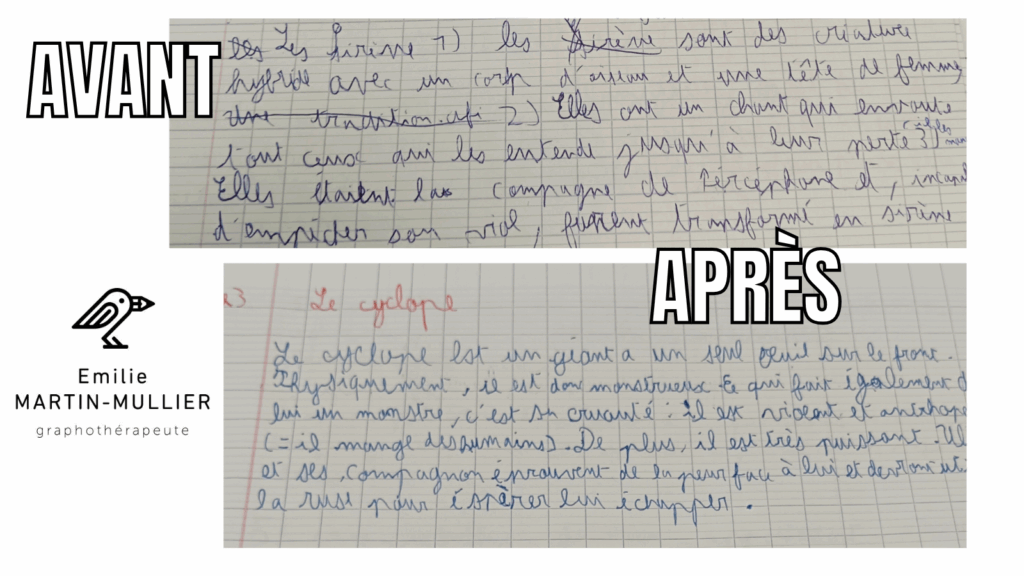 AVANT
les Les Sirène 1) les Sirène sont des créature
hybride avec un corp d'oiseau et une tête de femme,
Une tradition 2) Elles ont un chant qui envoute
tout ceux qui les entende jusqu'à leur perte 3)
Elles étaient la compagne de Perséphone et,
d'empêcher son viol, furent transformé en sirène
APRÈS
3 Le cyclope
Le cyclope est un géant a un seul oeuil sur le front.
Physiquement, il est don monstrueux. Ce qui fait également d
lui un monstre, c'est sa cruauté : il est violent et antrhope
(= il mange des humains). De plus, il est très puissant. Ul
et ses compagnon éprouvent de la peur face à lui et devront uti
la ruse pour éspèrer lui échapper.
Emilie
MARTIN-MULLIER
graphothérapeute